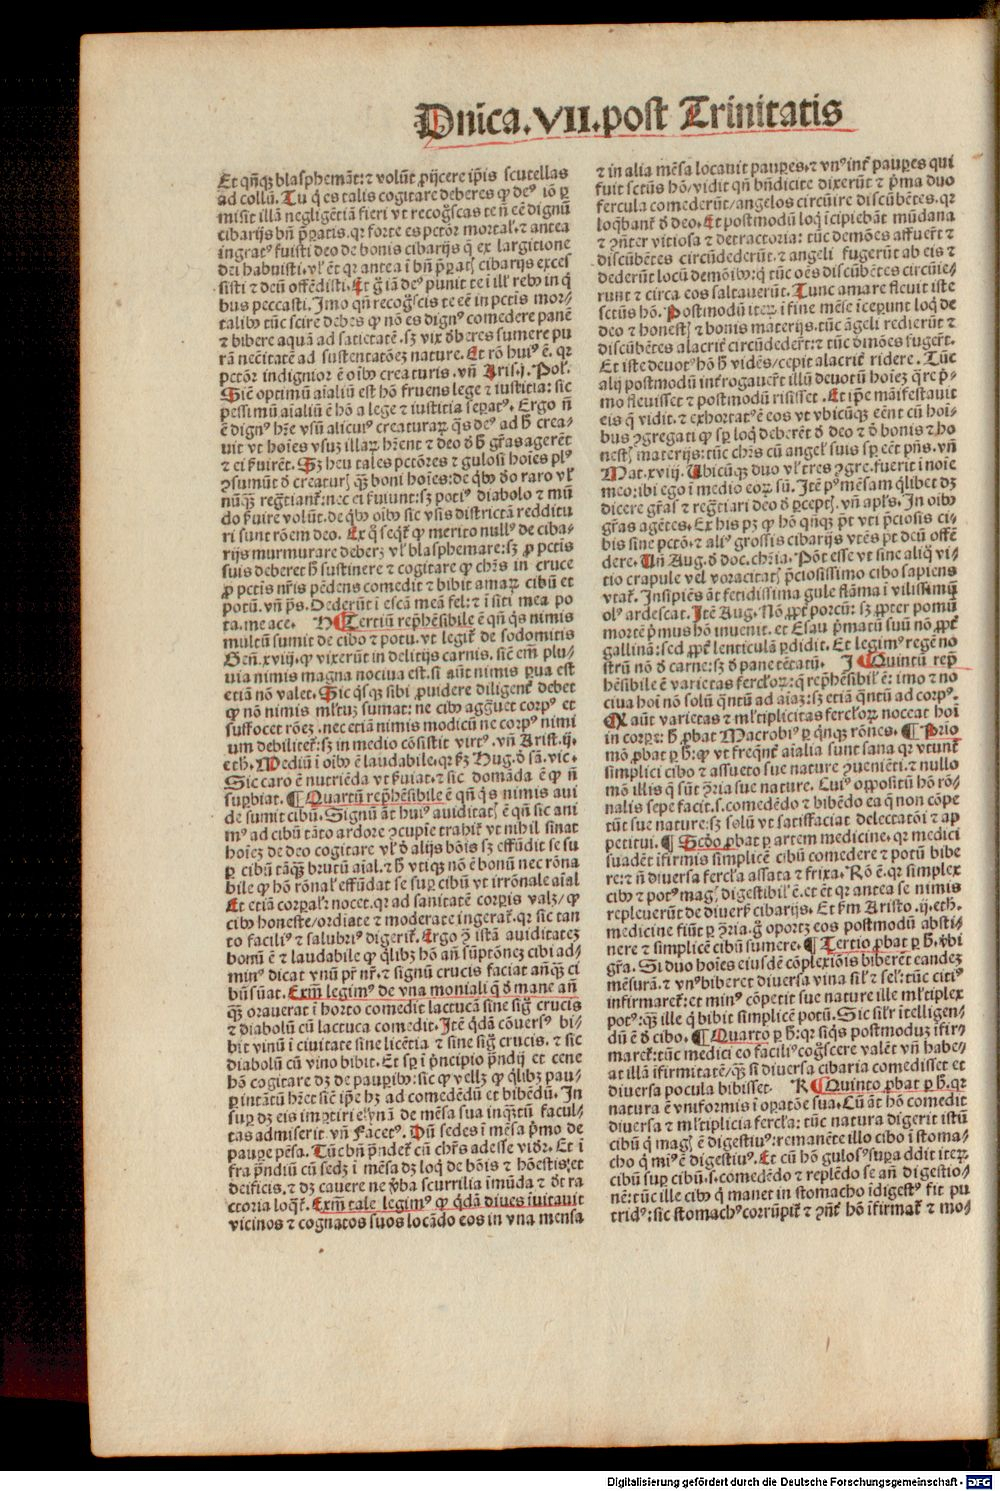 Dn̄ica.VII.post Trinitatis
Et qn̄qꝫ blasphemāt:⁊ volūt ꝓijcere ip̄is scutellas
ad collū. Tu q̇ es talis cogitare deberes ꝙ deꝰ iō ꝑ
misit illā negligētiā fieri vt recog̃scas te ñ eē dignū
cibarijs bn̄ p̄ꝑatis.qꝛ forte es pctōr mortal̕.⁊ antea
ingratꝰ fuisti deo de bonis cibarijs q̄ ex largitione
dei habuisti.vl̕ ēt qꝛ antea ī bn̄ p̄ꝑatꝭ cibarijs exces
sisti ⁊ deū offēdisti. Et g̃ iā deꝰ punit te ī ill̕ rebꝰ in q̇
bus peccasti. Imo qn̄ recog̃scis te eē in pctis mor⸗
talibꝰ tūc scire debes ꝙ nō es dignꝰ comedere panē
⁊ bibere aquā ad satietatē.sꝫ vix d̄beres sumere pu
rā necitatē ad sustentatōeꝫ nature. Et rō huiꝰ ē. qꝛ
pctōr indignior ē oībꝰ creaturis.vn̄ Aris.j.Pol̕.
Sic̄ optimū aīaliū est hō fruens lege ⁊ iustitia: sic
pessimū aīaliū ē hō a lege ⁊ iustitia seꝑatꝰ. Ergo ñ
ē dignꝰ hr̄e vsū alicuiꝰ creaturaꝝ qs̄ deꝰ ad h̄ crea⸗
uit vt hoīes vsuꝫ illaꝝ hr̄ent ⁊ deo d̄ h̄ gr̄as agerēt
⁊ ei ẜuirēt. Sꝫ heu tales pctōres ⁊ gulosi hoīes plꝰ
ꝯsumūt d̄ creaturꝭ qꝫ boni hoīes:de qbꝰ d̄o raro vl̕
nūqꝫ regr̄tiant̕:nec ei ẜuiunt:sꝫ potiꝰ diabolo ⁊ mū
do ẜuire volūt.de qbꝰ oībꝰ sic vsis districtā redditu
ri sunt rōem deo. Ex q̇ seqt̕ ꝙ merito nullꝰ de ciba⸗
rijs murmurare deberꝫ vl̕ blasphemare:sꝫ ꝓ pctis
suis deberet h̄ sustinere ⁊ cogitare ꝙ chr̄s in cruce
ꝓ pctis nr̄is pēdens comedit ⁊ bibit amaꝝ cibū et
potū.vn̄ ps̄. Dederūt ī escā meā fel:⁊ ī siti mea po
ta.me ace. H ¶Tertiū rep̄hēsibile ē qn̄ qs nimis
multū sumit de cibo ⁊ potu.vt legit̕ de sodomitis
Gen̄.xviij.ꝙ vixerūt in delitijs carnis. sic̄ em̄ plu⸗
uia nimis magna nociua est.si aūt nimis ꝑua est
etiā nō valet. Sic qsqꝫ sibi ꝓuidere diligent̕ debet
ꝙ nō nimis ml̕tuꝫ sumat: ne cibꝰ aggͣuet corpꝰ et
suffocet rōeꝫ.nec etiā nimis modicū ne corpꝰ nimi
um debilitet̕:sꝫ in medio cōsistit virtꝰ. vn̄ Arist.ij.
eth. Mediū ī oībꝰ ē laudabile.qꝛ ẜꝫ Hug.d̄ sā.vic.
Sic caro ē nutriēda vt ẜuiat.⁊ sic domāda ē ꝙ ñ
suꝑbiat. ¶Quartū rep̄hēsibile ē qn̄ qs nimis aui
de sumit cibū. Signū āt huiꝰ auiditatꝭ ē qn̄ sic ani
mꝰ ad cibū tāto ardore ꝯcupīe trahit̕ vt nihil sinat
hoīeꝫ de deo cogitare vl̕ d̄ alijs bōis sꝫ effūdit se su
ꝑ cibū tāqꝫ brutū aīal.⁊ h̄ vtiqꝫ nō ē bonū nec rōna
bile ꝙ hō rōnal̕ effūdat se suꝑ cibū vt irrōnale aīal
Et etiā corꝑal̕:nocet.qꝛ ad sanitatē corꝑis valꝫ/ꝙ
cibꝰ honeste/ordiate ⁊ moderate ingerat̕.qꝛ sic tan
to faciliꝰ ⁊ salubriꝰ digerit̕. Ergo ꝯ̄ istā auiditateꝫ
bonū ē ⁊ laudabile ꝙ ql̕bꝫ hō añ sūptōneꝫ cibi ad⸗
minꝰ dicat vnū pr̄ nr̄.⁊ signū crucis faciat añqꝫ ci
bū sūat. Exm̄ legimꝰ de vna moniali q̄ d̄ mane añ
qꝫ orauerat ī horto comedit lactucā sine sig̃ crucis
⁊ diabolū cū lactuca comedit. Itē qdā cōuersꝰ bi⸗
bit vinū ī ciuitate sine licētia ⁊ sine sig̃ crucis. ⁊ sic
diabolū cū vino bibit. Et sꝑ ī p̄ncipio p̄ndij et cene
hō cogitare dꝫ de pauꝑibꝰ:sic ꝙ vellꝫ ꝙ ql̕bꝫ pau⸗
ꝑ intātū hr̄et sic̄ ip̄e hꝫ ad comedēdū et bibēdū. In
suꝑ dꝫ eis imꝑtiri elyn̄ā de mēsa sua inqͣtū facul⸗
tas admiserit.vn̄ Facetꝰ. Dū sedes ī mēsa p̄mo de
pauꝑe pēsa. Tūc bn̄ p̄ndet̕ cū chr̄s adesse videt̕. Et ī
fra p̄ndiū cū sedꝫ ī mēsa dꝫ loq̇ de bōis ⁊ hōestis:et
deificis.⁊ dꝫ cauere ne v̄ba scurrilia īmūda ⁊ det̕ ra
ctoria loqt̕. Exm̄ tale legimꝰ ꝙ qdā diues inuitauit
vicinos ⁊ cognatos suos locādo eos in vna mensa
⁊ in alia mēsa locauit pauꝑes.⁊ vnꝰ int̕ pauꝑes qui
fuit sctūs hō/vidit qn̄ bn̄dicite dixerūt ⁊ p̄ma duo
fercula comederūt/angelos circūire discūbētes.qꝛ
loq̄bant̕ d̄ deo. Et postmodū loq̇ īcipiebāt mūdana
⁊ ꝯn̄ter vitiosa ⁊ detractoria: tūc demōes affuerūt ⁊
discūbētes circūdederūt.⁊ angeli fugerūt ab eis ⁊
dederūt locū demōibꝰ:q̇ tūc oēs discūbētes circūie⸗
runt ⁊ circa eos saltauerūt. Tunc amare fleuit iste
sctūs hō. Postmodū iteꝝ ī fine mēse īceperunt loq̇ de
deo ⁊ honestꝭ ⁊ bonis materijs.tūc āgeli redierūt ⁊
discūbētes alacrit̕ circūdedert̕:⁊ tūc d̄mōes fugert̕.
Et iste deuotꝰ hō h̄ vidēs/cepit alacrit̕ ridere. Tūc
alij postmodū int̕rogauert̕ illū deuotū hoīeꝫ q̄re p̄⸗
mo fleuisset ⁊ postmodū risisset. Et ip̄e māifestauit
eis q̄ vidit.⁊ exhortatꝰ ē eos vt vbicūqꝫ eent cū hoī⸗
bus ꝯgregati ꝙ sꝑ loq̇ deberēt d̄ deo ⁊ d̄ bonis ⁊ ho
nestꝭ materijs:tūc chr̄s cū angel̕ suis sꝑ eēt pn̄s.vn̄
Mat.xviij. Ubicūqꝫ duo vl̕ tres ꝯgre.fuerit ī noīe
meo:ibi ego ī medio eoꝝ sū. Itē pꝰ mēsam ql̕ibet dꝫ
dicere gr̄as ⁊ regr̄tiari deo d̄ ꝑceptꝭ.vn̄ apl̕s. In oībꝰ
gr̄as agētes. Ex his pꝫ ꝙ hō qn̄qꝫ pt̄ vti p̄ciosis ci⸗
bis sine pctō.⁊ aliꝰ grossis cibarijs vtēs pt̄ deū offē
dere. Un̄ Aug.d̄ doc.chr̄ia. Pōt esse vt sine aliq̇ vi⸗
tio crapule vel voracitatꝭ p̄ciosissimo cibo sapiens
vtat̕. Insipiēs āt fetidissima gule flāma ī vilissimū
olꝰ ardescat. Itē Aug. Nō ꝓpt̕ porcū: sꝫ ꝓpter pomū
mortē p̄mus hō inuenit.et Esau p̄matū suū nō ꝓpt̕
gallinā:sed ꝓpt̕ lenticulā ꝑdidit. Et legimꝰ regē no
strū nō d̄ carne:sꝫ d̄ pane tētatū. I ¶Quintū rep̄
hēsibile ē varietas fercl̕oꝝ:q̄ rep̄hēsibil̕ ē: imo ⁊ no
ciua hoī nō solū qͣntū ad aīaꝫ:sꝫ etiā qͣntū ad corpꝰ.
Qꝛ aūt varietas ⁊ ml̕tiplicitas fercl̕oꝝ noceat hoī
in corꝑe: h̄ ꝓbat Macrobiꝰ ꝑ qnqꝫ rōnes. ¶Prio
mō ꝓbat ꝑ h̄:ꝙ vt freqn̄t̕ aīalia sunt sana qꝛ vtunt̕
simplici cibo ⁊ assueto sue nature ꝯuenīeti.⁊ nullo
mō illis q̄ sūt ꝯ̄ria sue nature. Cuiꝰ oppositū hō rō⸗
nalis sepe facit.s.comedēdo ⁊ bibēdo ea q̄ non cōpe
tūt sue nature:sꝫ solū vt satisfaciat delectatōi ⁊ ap
petitui. ¶Scd̄o ꝓbat ꝑ artem medicine.qꝛ medici
suadēt īfirmis simplicē cibū comedere ⁊ potū bibe
re:⁊ ñ diuersa fercl̕a assata ⁊ frixa. Rō ē.qꝛ simplex
cibꝰ ⁊ potꝰ magꝭ digestibil̕ ē.et ēt qꝛ antea se nimis
repleuerūt de diuersꝭ cibarijs. Et ẜm Aristo.ij.eth.
medicine fiūt ꝑ ꝯ̄ria.g̃ oportꝫ eos postmodū absti⸗
nere ⁊ simplicē cibū sumere. ¶Tertio ꝓbat ꝑ h̄.vbi
gr̄a. Si duo hoīes eiusdē cōplexiōis biberēt eandeꝫ
mēsurā.⁊ vnꝰ biberet diuersa vina sil̕ ⁊ sel̕:tūc citiꝰ
infirmaret̕:et minꝰ cōpetit sue nature ille ml̕tiplex
potꝰ:qꝫ ille q̇ bibit simplicē potū. Sic sil̕r ītelligen⸗
dū ē d̄ cibo. ¶Quarto ꝑ h̄:qꝛ siqs postmoduꝫ īfir⸗
maret̕:tūc medici eo faciliꝰ cog̃scere valēt vn̄ habe⸗
at illā īfirmitatē/qꝫ si diuersa cibaria comedisset et
diuersa pocula bibisset. K ¶Quinto ꝓbat ꝑ h̄.qꝛ
natura ē vniformis ī oꝑatōe sua. Cū āt hō comedit
diuersa ⁊ ml̕tiplicia fercl̕a: tūc natura digerit istū
cibū q̇ magꝭ ē digestiuꝰ:remanēte illo cibo ī stoma⸗
cho q̇ miꝰ ē digestiuꝰ. Et cū hō gulosꝰ supra addit iteꝝ
cibū suꝑ cibū.s.comedēdo ⁊ replēdo se añ digestio⸗
nē:tūc ille cibꝰ q̇ manet in stomacho īdigestꝰ fit pu
tridꝰ:sic stomachꝰ corrūpit̕ ⁊ ꝯn̄t̕ hō īfirmat̕ ⁊ mo⸗
Digitalisierung gefördert durch die Deutsche Forschungsgemeinschaft - DFG